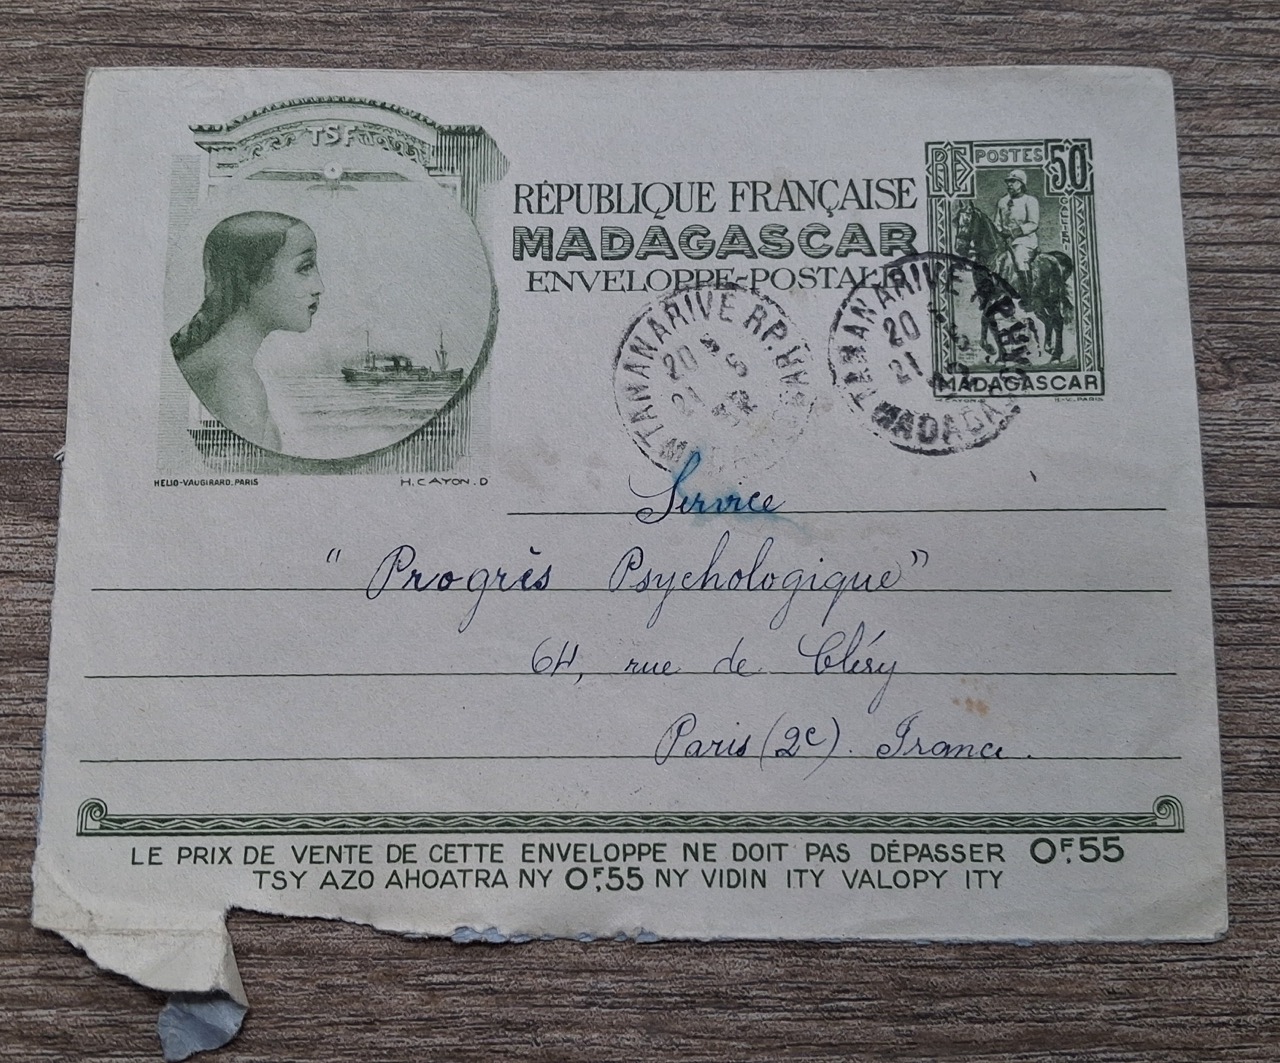 TSF
RÉPUBLIQUE FRANÇAISE
MADAGASCAR
ENVELOPPE-POSTALE
RF POSTES 50c
GALLIENI
MADAGASCAR
H. CAYON. D H.-V. PARIS
TANANARIVE RP.
20
21
MADAGASCAR
TANANARIVE RP.
20
21
MADAGASCAR
HELIO-VAUGIRARD. PARIS H. CAYON. D
Service
" Progrès Psychologique "
64, rue de Cléry
Paris (2e). France.
LE PRIX DE VENTE DE CETTE ENVELOPPE NE DOIT PAS DÉPASSER 0F,55
TSY AZO AHOATRA NY 0F,55 NY VIDIN ITY VALOPY ITY